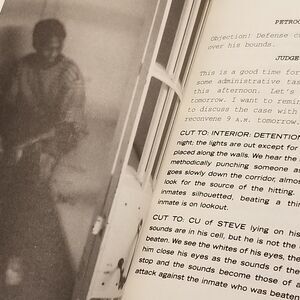 PETROC
Objection! Defense c
over his bounds.
JUDGE
This is a good time for
some administrative tas
this afternoon. Let's
tomorrow. I want to remi
to discuss the case with
reconvene 9 A.M. tomorrow.
CUT TO: INTERIOR: DETENTION
night; the lights are out except for
placed along the walls. We hear the
methodically punching someone a
goes slowly down the corridor, almos
look for the source of the hitting.
inmates silhouetted, beating a thi
inmate is on lookout.
CUT TO: CU of STEVE lying on his
sounds are in his cell, but he is not the
beaten. We see the whites of his eyes, the
him close his eyes as the sounds of the
stop and the sounds become those of
attack against the inmate who was beaten